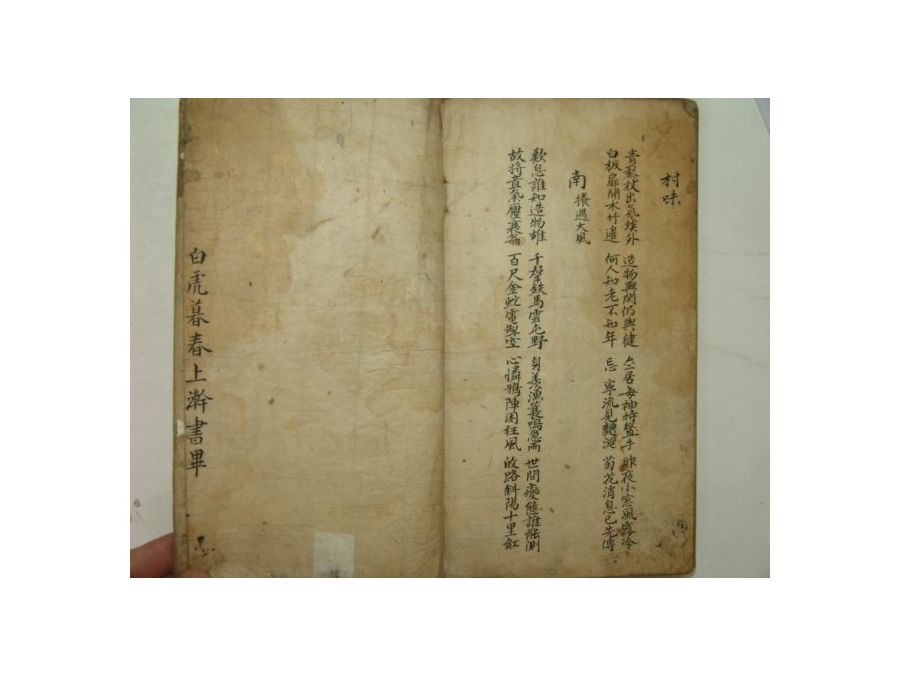 村味
青藜杖出氛埃外 造物與閑仍與健 居每袖持螯手 昨夜小窓風露冷
白板扉開水竹邊 何人知老不知年 忘 寧流見麴涎 菊花消息已先傳
南樓遇大風
歎息誰知造物雄 千羣鉄馬雲屯野 身羨漁蓑鳴急雨 世間變態誰能測
故將意氣壓衰翁 百尺金蛇電掣空 心憐鴉陣困狂風 故路斜陽十里紅
白虎暮春上澣書畢